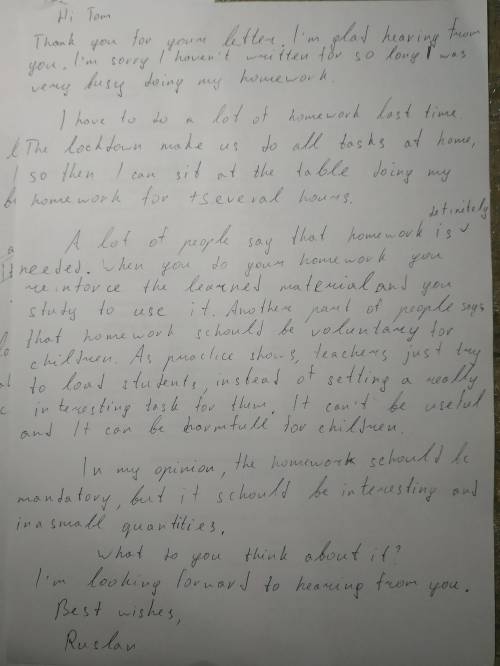 Hi Tom
Thank you for youre letter. I'm glad hearing from
you. I'm sorry I haven't written for so long I was
very busy doing my homework.
I have to do a lot of homework last time.
The lockdown make us do all tasks at home,
so then I can sit at the table doing my
homework for several hours.
definitely
A lot of people say that homework is
needed. When you do your homework you
reinforce the learned material and you
study to use it. Another part of people says
that homework schould be voluntary for
children. As practice shows, teachers just try
to load students, instead of setting a really
interesting task for them. It can't be useful
and It can be harmfull for children.
In my opinion, the homework schould be
mandatory, but it schould be interesting and
in a small quantities.
What do you think about it?
I'm looking forward to hearing from you.
Best wishes,
Ruslan